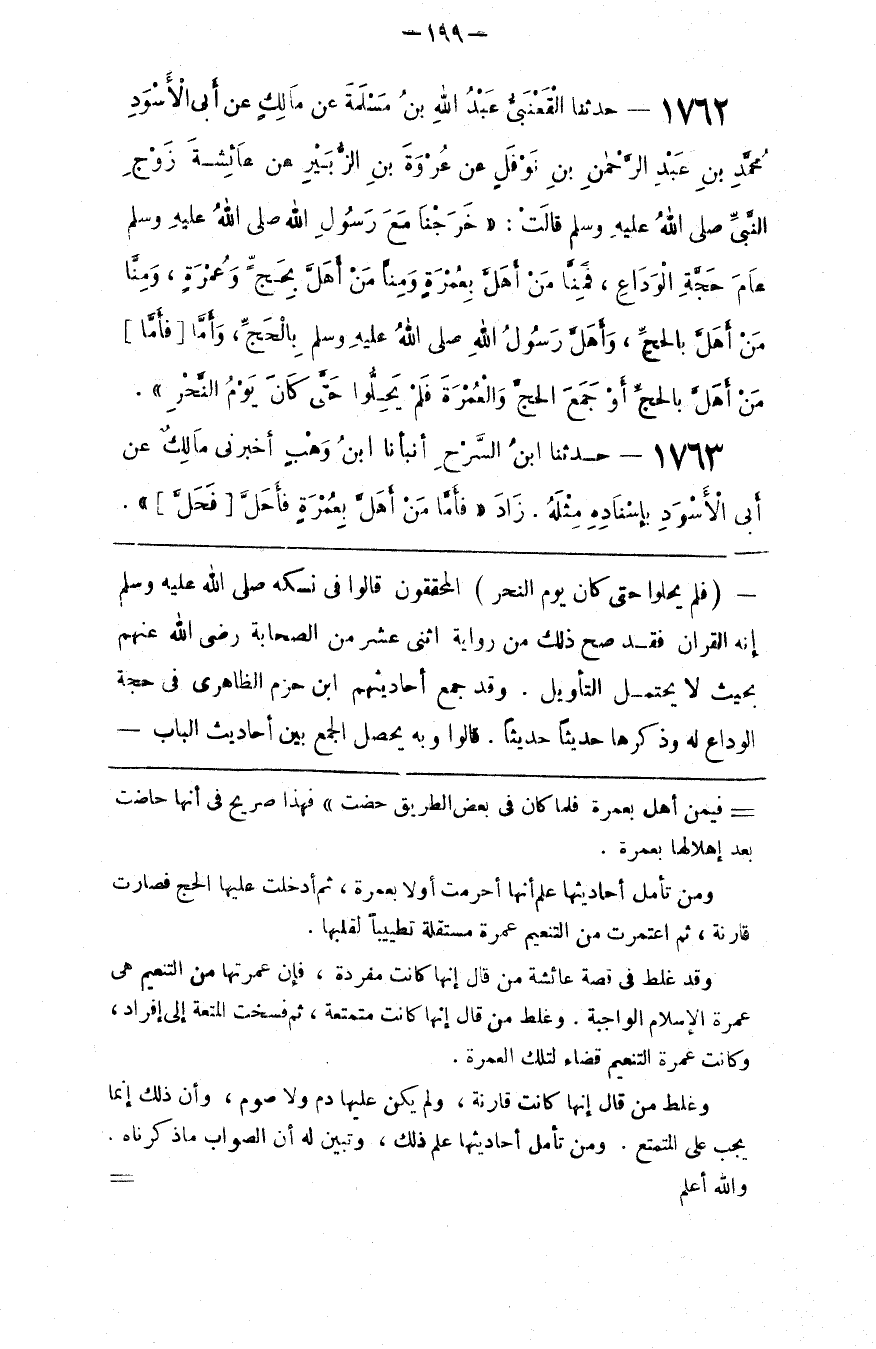 – ١٩٩ –
١٧٦٢ – حدثنا الْقَعْنَبِيُّ عَبْدُ اللهِ بنُ مَسْلَمَةَ عن مَالِكٍ عن أَبى الْأَسْوَدِ
مُحمَّدِ بنِ عَبْدِ الرَّحْمٰنِ بنِ نَوْفَلٍ عن عُرْوَةَ بنِ الزُّبَيْرِ عن عَائِشَةَ زَوْجِ
النَّبِيِّ صلى اللهُ عليهِ وسلم قالَتْ : « خَرَجْنَا مَعَ رَسُولِ اللهِ صلى اللهُ عليهِ وسلم
عَامَ حَجَّةِ الْوَدَاعِ ، فَمِنَّا مَنْ أَهَلَّ بِعُمْرَةٍ وَمِنَّا مَنْ أَهَلَّ بِحَجٍّ وَعُمْرَةٍ ، وَمِنَّا
مَنْ أَهَلَّ بالحجِّ ، وَأَهَلَّ رَسُولُ اللهِ صلى اللهُ عليهِ وسلم بِالْحَجِّ ، وَأَمَّا [ فأَمَّا ]
مَنْ أَهَلَّ بالحجِّ أَوْ جَمَعَ الحجَّ وَالْعُمْرَةَ فَلَمْ يَحِلُّوا حَتَّى كَانَ يَوْمُ النَّحْرِ » .
١٧٦٣ – حدثنا ابنُ السَّرْحِ أنبأنا ابنُ وَهْبٍ أخبرنى مَالِكٌ عن
أَبى الْأَسْوَدِ بإِسْنَادِهِ مِثْلَهُ . زَادَ « فأَمَّا مَنْ أَهَلَّ بِعُمْرَةٍ فأَحَلَّ [ فَحَلَّ ] » .
– ( فلم يحلوا حتى كان يوم النحر ) المحققون قالوا فى نسكه صلى الله عليه وسلم
إنه القران فقد صح ذلك من رواية اثنى عشر من الصحابة رضى الله عنهم
بحيث لا يحتمل التأويل . وقد جمع أحاديثهم ابن حزم الظاهرى فى حجة
الوداع له وذكرها حديثاً حديثاً . قالوا وبه يحصل الجمع بين أحاديث الباب –
= فيمن أهل بعمرة فلما كان فى بعض الطريق حضت » فهذا صريح فى أنها حاضت
بعد إهلالها بعمرة .
ومن تأمل أحاديثها علم أنها أحرمت أولا بعمرة ، ثم أدخلت عليها الحج فصارت
قارنة ، ثم اعتمرت من التنعيم عمرة مستقلة تطييباً لقلبها .
وقد غلط فى قصة عائشة من قال إنها كانت مفردة ، فإن عمرتها من التنعيم هى
عمرة الإسلام الواجبة . وغلط من قال إنها كانت متمتعة ، ثم فسخت المتعة إلى إفراد ،
وكانت عمرة التنعيم قضاء لتلك العمرة .
وغلط من قال إنها كانت قارنة ، ولم يكن عليها دم ولا صوم ، وأن ذلك إنما
يجب على المتمتع . ومن تأمل أحاديثها علم ذلك ، وتبين له أن الصواب ما ذكرناه .
والله أعلم =